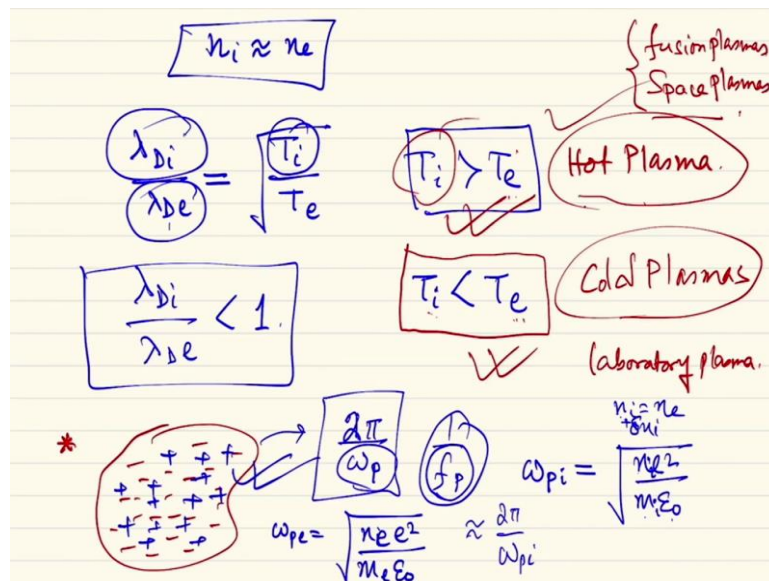 nᵢ ≈ nₑ
{ fusion plasmas
Space plasmas
λ_Di / λ_De = √(Tᵢ / Tₑ)
Tᵢ > Tₑ
Hot Plasma.
λ_Di / λ_De < 1.
Tᵢ < Tₑ
Cold Plasmas
laboratory plasma.
*
2π / ω_p
f_p
nᵢ = nₑ
ω_pi = √(nᵢe² / mᵢε₀)
ω_pe = √(nₑe² / mₑε₀) ≈ 2π / ω_pi